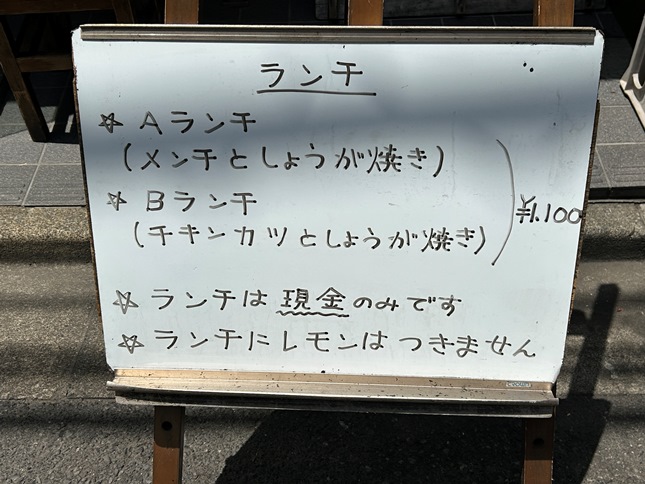 ランチ
☆ Aランチ
(メンチとしょうが焼き)
☆ Bランチ
(チキンカツとしょうが焼き)
¥1.100
☆ ランチは現金のみです
☆ ランチにレモンはつきません